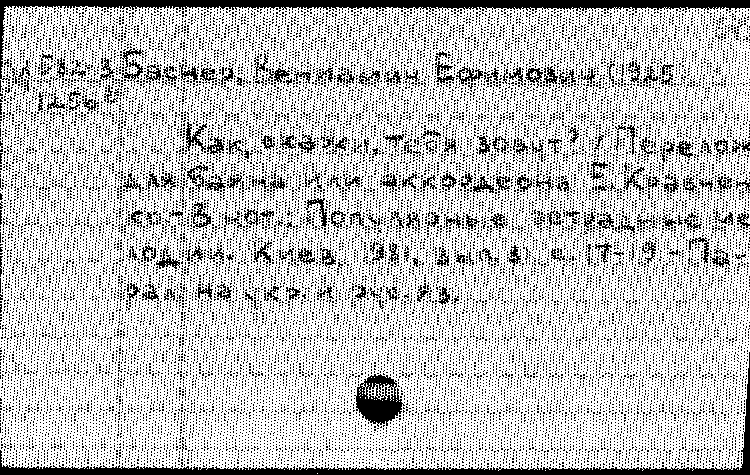 Баснер, Вениамин Ефимович (1925
Как, скажи, тебя зовут? / Перелож
для баяна или аккордеона Е. Кравчен-
ко - В нот.: Популярные эстрадные ме-
лодии. Киев, 981, вып. 3 с. 17-19 - Па-
рал. на укр. и рус. яз.